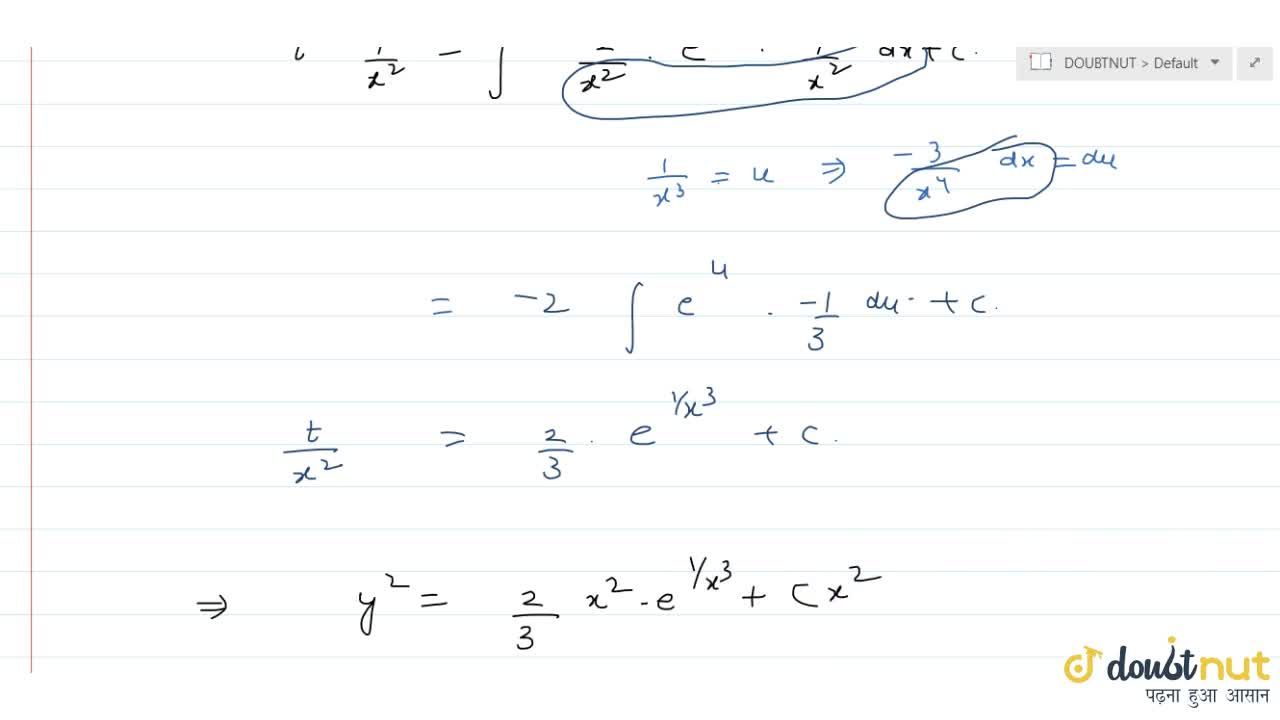 1/x² - ∫ /x² . 1/x² dx + c.
DOUBTNUT > Default
1/x³ = u ⇒ -3/x⁴ dx = du
= -2 ∫ e^u . -1/3 du + c.
t/x² = 2/3 . e^(1/x³) + c.
⇒ y² = 2/3 x² . e^(1/x³) + Cx²
doubtnut
पढ़ना हुआ आसान